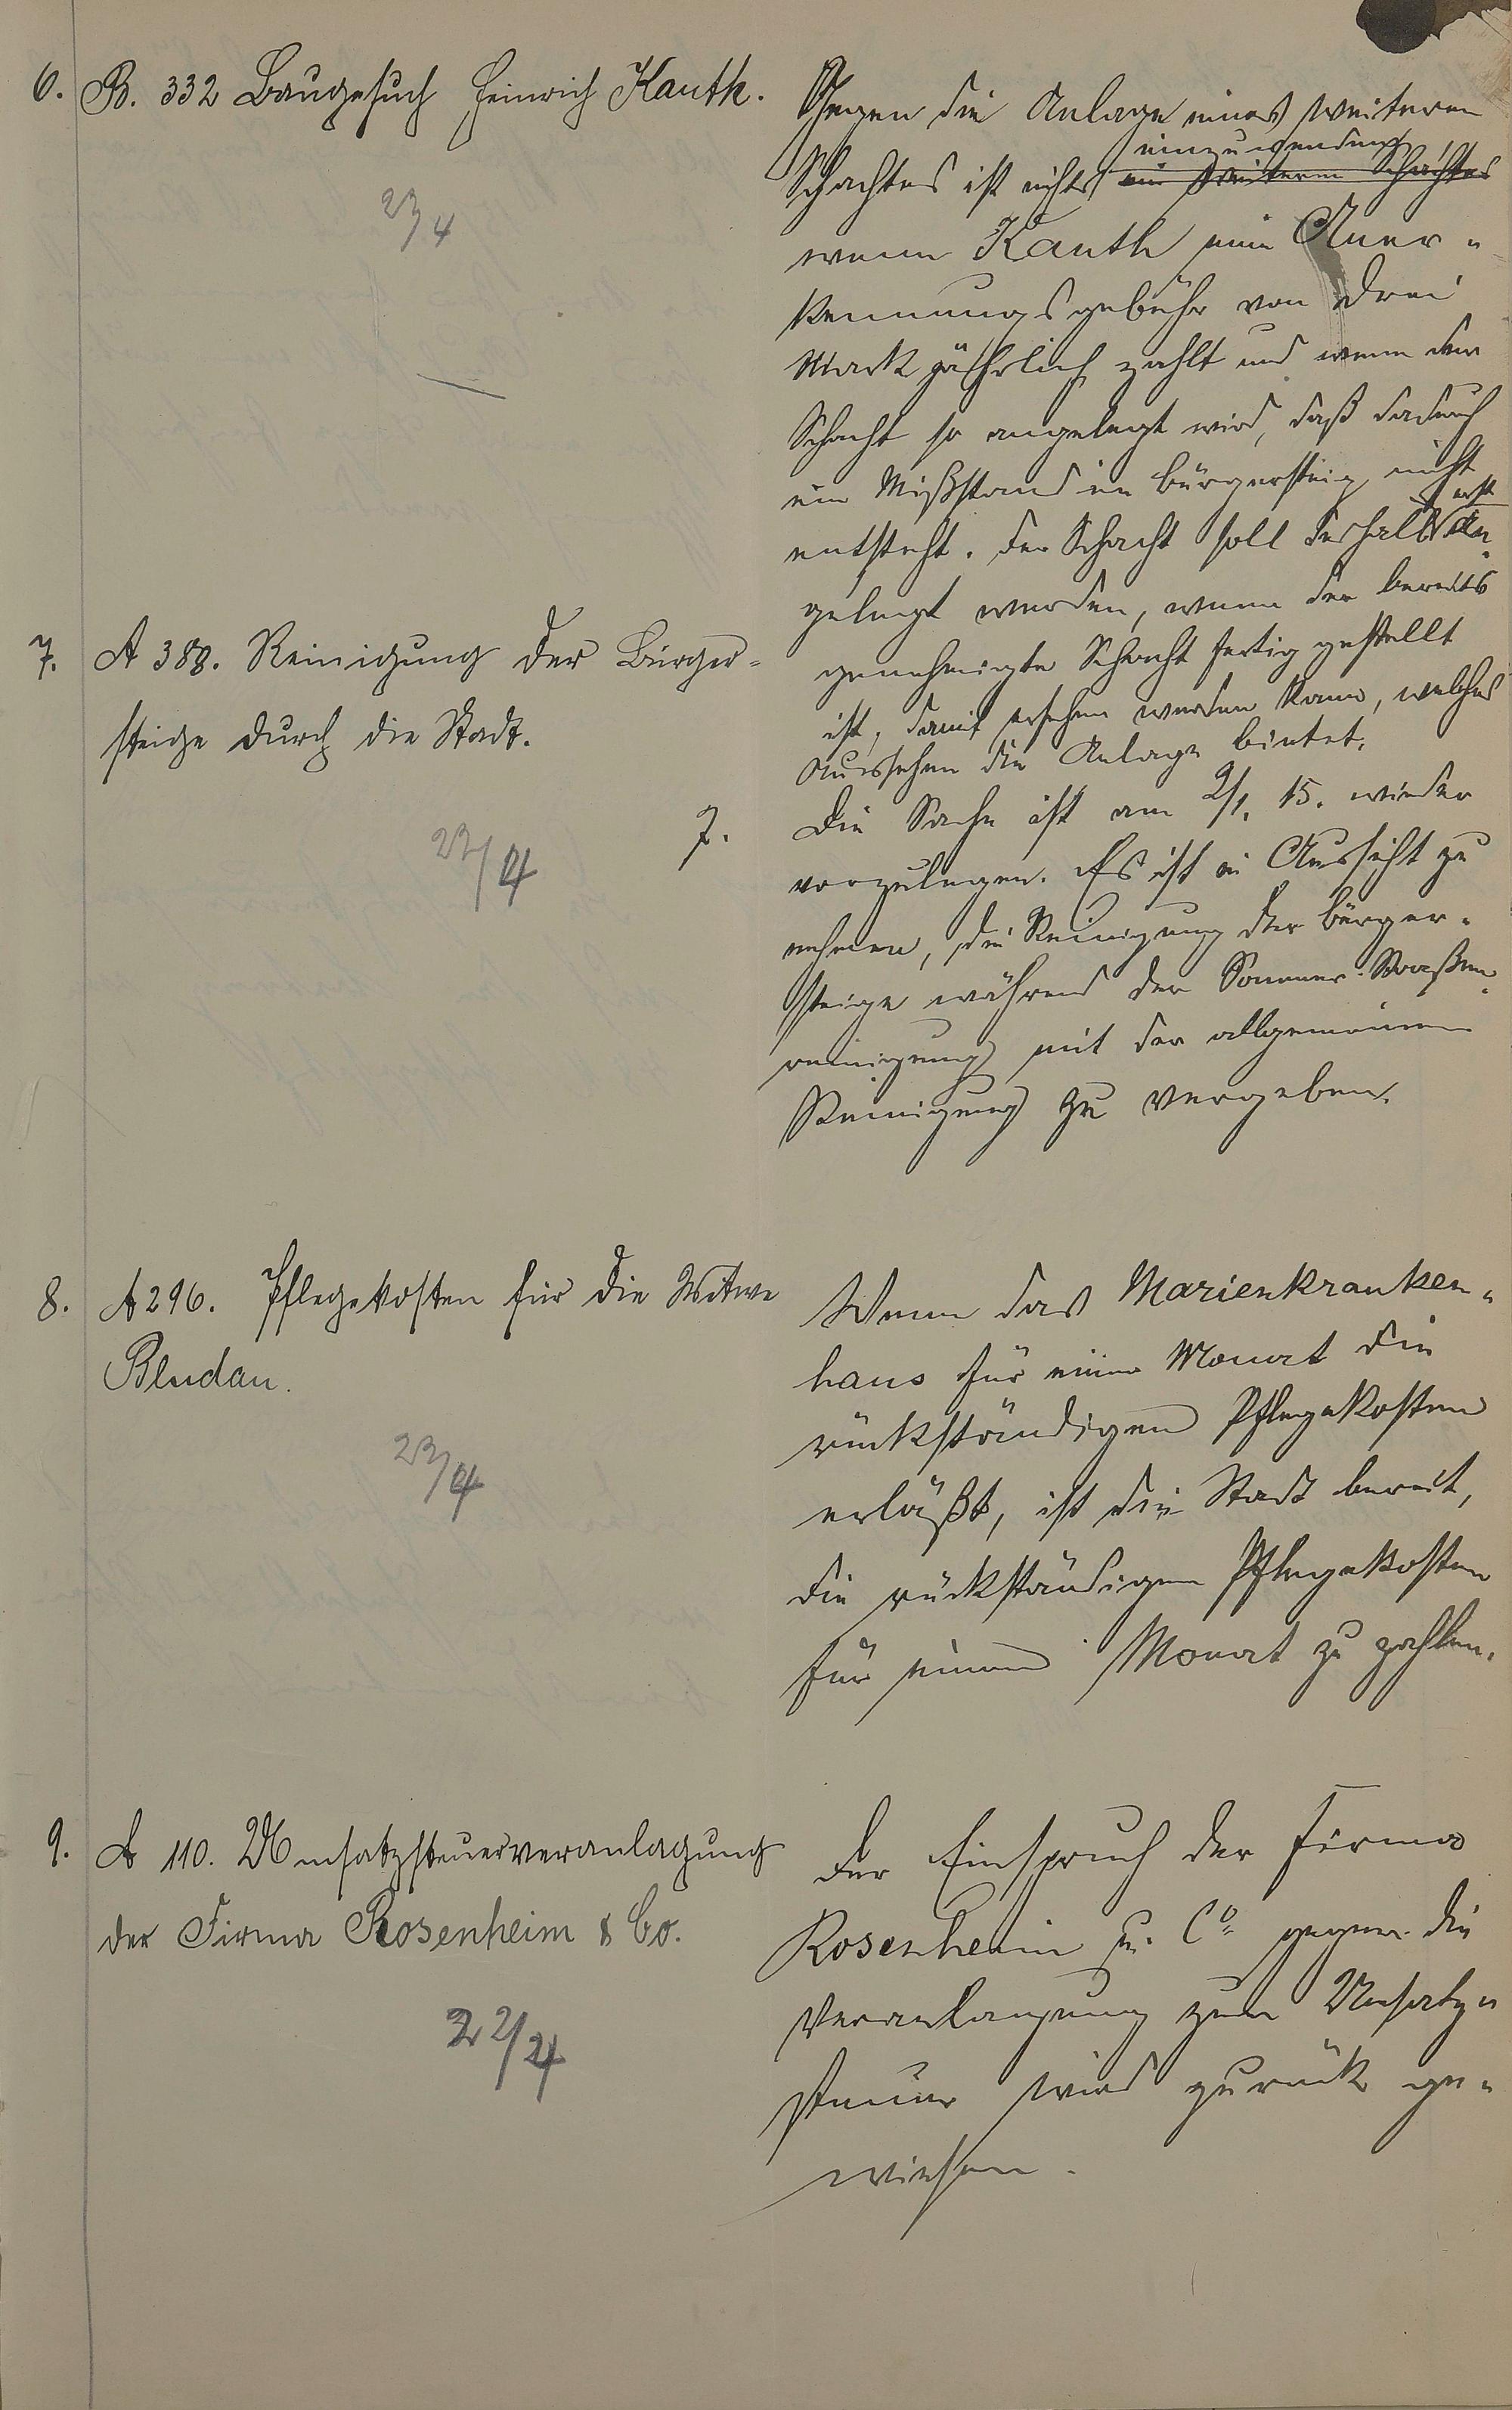 6. B. 332 Baugesuch Heinrich Kauth.
23/4
Gegen die Anlage eines weiteren
einzuwenden,
Schachtes ist nichts ein weiterer Schachtes
wenn Kauth eine Aner-
kennungsgebühr von drei
Mark jährlich zahlt und wenn der
Schacht so angelegt wird, daß dadurch
ein Mißstand im Bürgersteig nicht
erst
entsteht. Der Schacht soll deshalb an-
gelegt werden, wenn der bereits
genehmigte Schacht fertig gestellt
ist, damit ersehen werden kann, welches
Aussehen die Anlage bietet.
7. A 388. Reinigung der Bürger-
steige durch die Stadt.
23/4
7. Die Sache ist am 2/1. 15. wieder
vorzulegen. Es ist in Aussicht zu
nehmen, die Reinigung der Bürger-
steige während der Sommer-Straßen-
reinigung mit der allgemeinen
Reinigung zu vergeben.
8. A 296. Pflegekosten für die Witwe
Bludau.
23/4
Wenn das Marienkranken-
haus für einen Monat die
rückständigen Pflegekosten
erläßt, ist die Stadt bereit,
die rückständigen Pflegekosten
für einen Monat zu zahlen.
9. A 110. Umsatzsteuerveranlagung
der Firma Rosenheim & Co.
22/4
Der Einspruch der Firma
Rosenheim u. Co gegen die
Veranlagung zur Umsatz-
steuer wird zurück ge-
wiesen.